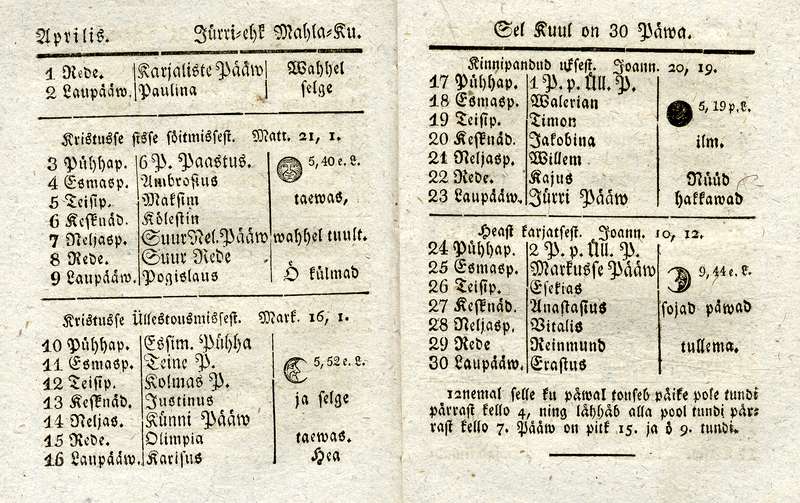 Aprilis. Jürri-ehk Mahla-Ku.
1 Rede. Karjaliste Pääw Wahhel
2 Laupääw. Paulina selge
Kristusse sisse sõitmissest. Matt. 21, 1.
3 Pühhap. 6 P. Paastus. 5, 40 e. L.
4 Esmasp. Ambrosius
5 Teisip. Maksim taewas,
6 Kesknäd. Kölestin
7 Neljasp. Suur Nel. Pääw wahhel tuult.
8 Rede. Suur Rede
9 Laupääw. Pogislaus Ö külmad
Kristusse Üllestousmissest. Mark. 16, 1.
10 Pühhap. Essim. Pühha
11 Esmasp. Teine P. 5, 52 e. L.
12 Teisip. Kolmas P.
13 Kesknäd. Justinus ja selge
14 Neljas. Künni Pääw
15 Rede. Olimpia taewas.
16 Laupääw. Karisus Hea
Sel Kuul on 30 Päwa.
Kinnipandud uksest. Joann. 20, 19.
17 Pühhap. 1 P. p. Üll. P.
18 Esmasp. Walerian 5, 19 p. L.
19 Teisip. Timon
20 Kesknäd. Jakobina ilm.
21 Neljasp. Willem
22 Rede. Kajus Nüüd
23 Laupääw. Jürri Pääw hakkawad
Heast karjatsest. Joann. 10, 12.
24 Pühhap. 2 P. p. Üll. P.
25 Esmasp. Markusse Pääw 9, 44 e. L.
26 Teisip. Esekias
27 Kesknäd. Anastasius sojad päwad
28 Neljasp. Vitalis
29 Rede Reinmund tullema.
30 Laupääw. Erastus
12nemal selle ku päwal touseb päike pole tundi
pärrast kello 4, ning lähhäb alla pool tundi pär-
rast kello 7. Pääw on pitk 15. ja ö 9. tundi.